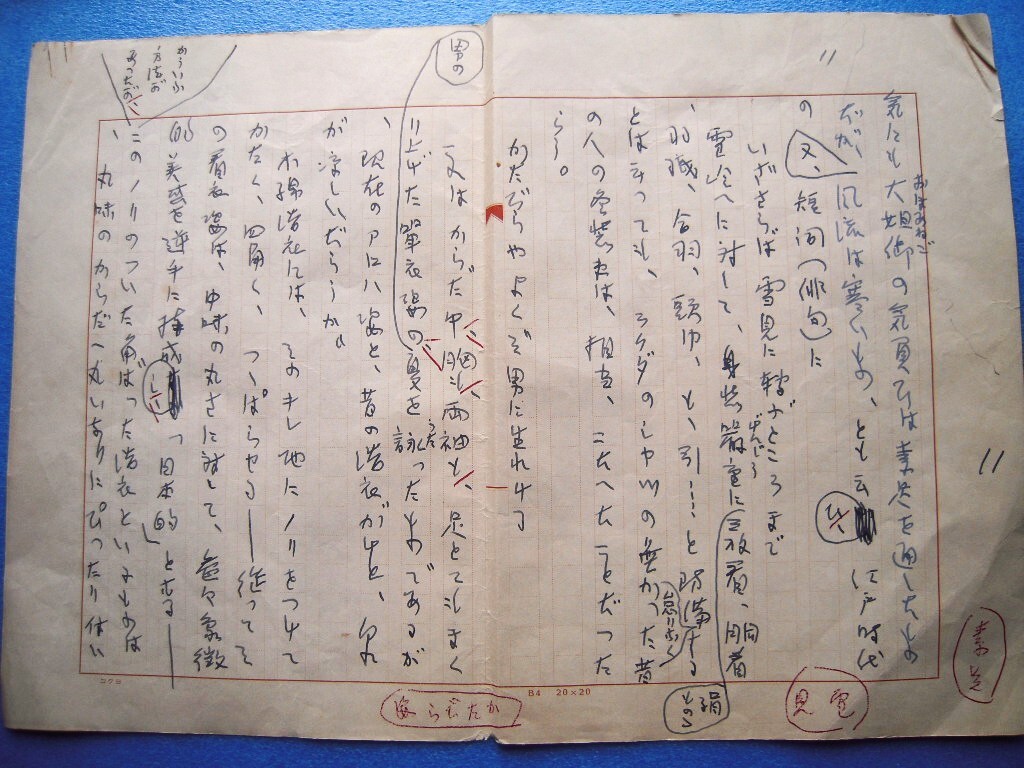 11
気にも大姐御の気負ひは素足を通したもの
おほあねご
だが、風流は寒いもの、とも云ひ、江戸時代
の又、短詞(俳句)に
いざさらば雪見に転ぶところまで
雪冷へに対して、身装厳重に
げんじう
三枚着、胴着
、羽織、合羽、頭巾、と引……と防備する
怠りなく
とは云つても、ラクダのシヤツの無かつた昔
の人の冬装束は、相当、こたへたことだつた
らう。
かたびらやよくぞ男に生れける
男の
又は からだ中 胸も両袖も、足とてもまく
り上げた単衣姿の夏を詠つたものであるが
うた
現在のアロハ姿と、昔の浴衣がけと、何れ
が涼しいだらうか。
木綿浴衣には、そのキレ地にノリをつけて
かたく、四角く、つつぱらせる――従つてそ
の着衣姿は、中味の丸さに対して、
的美感を逆手に
し、「日本的」ともる――
かういふ
方法が
あつたが、
このノリのついた角ばつた浴衣といふものは
、丸味のからだへ丸いなりにぴつたり付い
絹
もの
素足
雪見
かたびら姿
11
コクヨ
B4 20×20